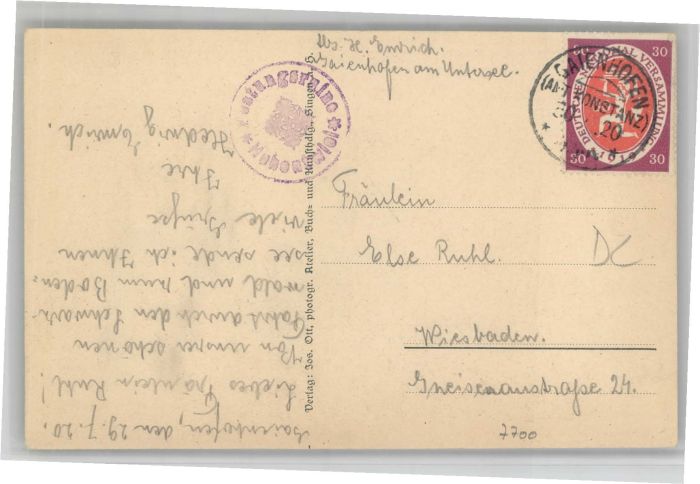 Abs. H. Emrich.
Gaienhofen am Untersee.
Festungsruine
Hohentwiel
GAIENHOFEN
(AMT KONSTANZ)
20
30
30
DEUTSCHE NATIONALVERSAMMLUNG
30
30
Fräulein
Else Ruhl.
DC
Wiesbaden.
Gneisenaustraße 24.
7700
Verlag: Jos. Ott, photogr. Atelier, Buch- und Kunsthdlg., Singen
Gaienhofen, den 29.7.20.
Liebes Fräulein Ruhl!
Von unsrer schönen
Fahrt durch den Schwarz-
wald und zum Boden-
see sende ich Ihnen
viele Grüße
Ihre
Hedwig Emrich.